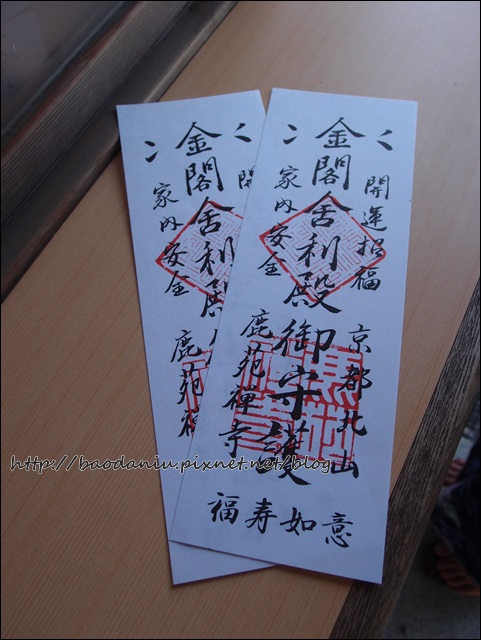 開運招福
京都北山
金閣舍利殿御守護
家内安全
鹿苑禅寺
福寿如意
開
金閣舍利殿
家内安全
鹿苑禅
http://baodaniu.pixnet.net/blog